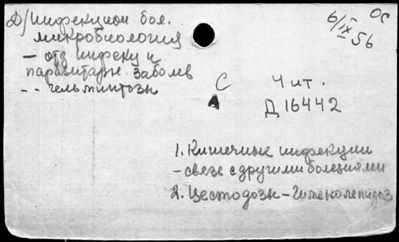 Д/ инфекцион. бол.
микробиология
— отд инфекц и
паразитарн. заболев
- - гельминтозы
ОС
6/IX 56
С
А
Чит.
Д 16442
1. Кишечные инфекции
- связь с другими болезнями
2. Цестодозы - Гименолепидоз